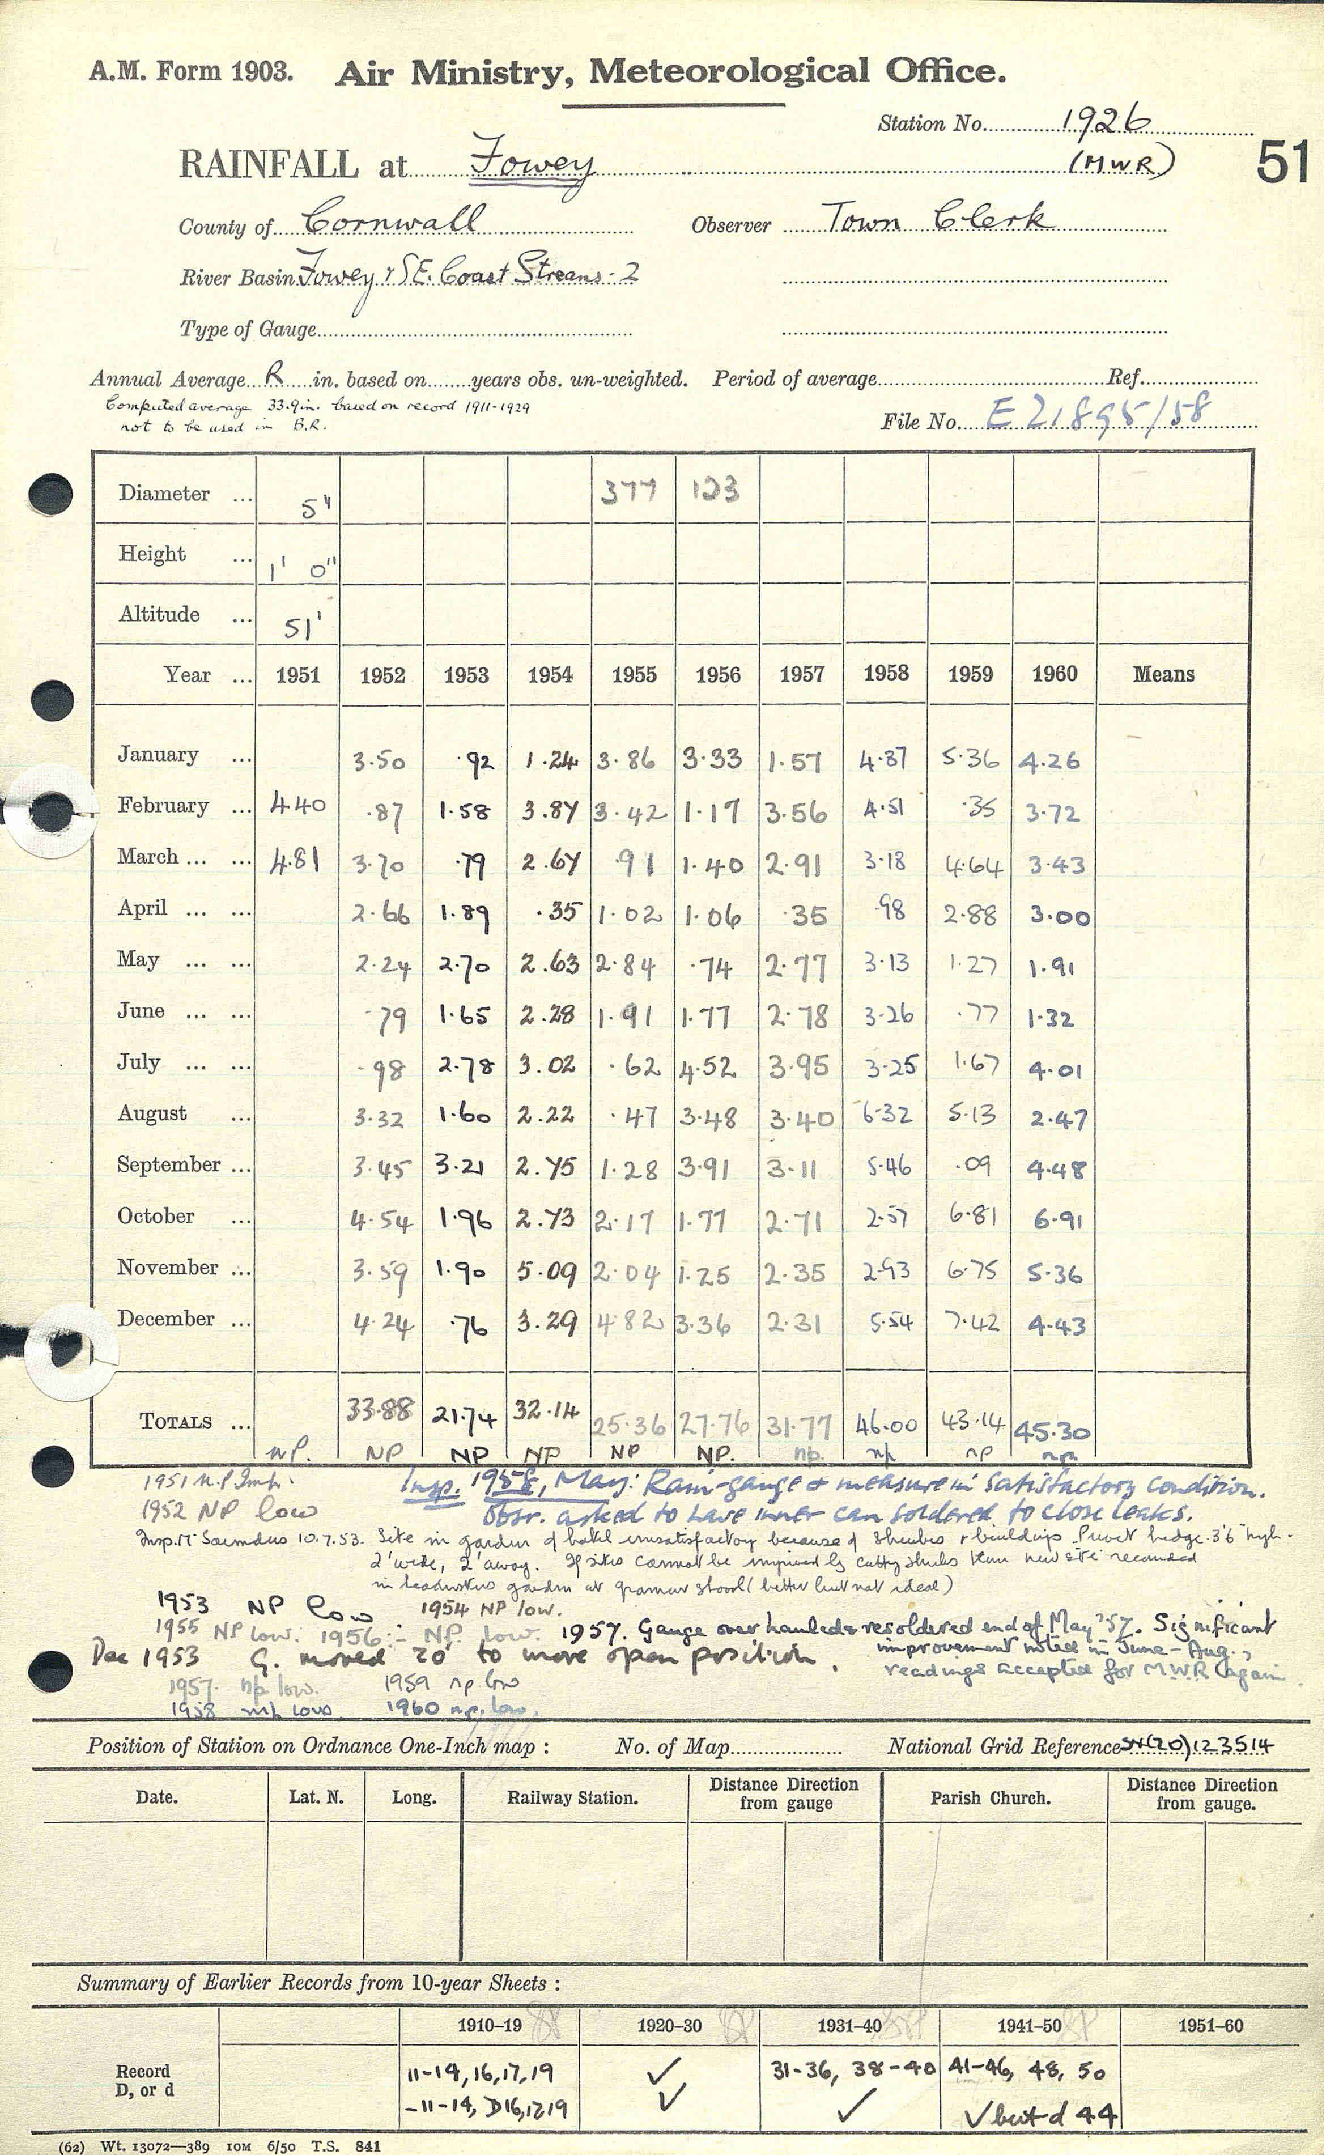 A.M. Form 1903. Air Ministry, Meteorological Office.
Station No. 1926
RAINFALL at Fowey (MWR) 51
County of Cornwall Observer Town Clerk
River Basin Fowey & S.E. Coast Streams - 2
Type of Gauge
Annual Average R in. based on years obs. un-weighted. Period of average Ref.
Computed average 33.9in. based on record 1911-1929
not to be used in B.R.
File No. E 21895/58
Diameter ... 5" 377 123
Height ... 1' 0"
Altitude ... 51'
Year ... 1951 1952 1953 1954 1955 1956 1957 1958 1959 1960 Means
January ... 3.50 .92 1.24 3.86 3.33 1.57 4.37 5.36 4.26
February ... 4.40 .87 1.58 3.87 3.42 1.17 3.56 4.51 .35 3.72
March ... ... 4.81 3.70 .79 2.67 .91 1.40 2.91 3.18 4.64 3.43
April ... ... 2.66 1.89 .35 1.02 1.06 .35 .98 2.88 3.00
May ... ... 2.24 2.70 2.63 2.84 .74 2.77 3.13 1.27 1.91
June ... ... .79 1.65 2.28 1.91 1.77 2.78 3.26 .77 1.32
July ... ... .98 2.78 3.02 .62 4.52 3.95 3.25 1.67 4.01
August ... 3.32 1.60 2.22 .47 3.48 3.40 6.32 5.13 2.47
September ... 3.45 3.21 2.75 1.28 3.91 3.11 5.46 .09 4.48
October ... 4.54 1.96 2.73 2.17 1.77 2.71 2.57 6.81 6.91
November ... 3.59 1.90 5.09 2.04 1.25 2.35 2.93 6.75 5.36
December ... 4.24 .76 3.29 4.82 3.36 2.31 5.54 7.42 4.43
TOTALS ... 33.88 21.74 32.14 25.36 27.76 31.77 46.00 43.14 45.30
np. NP NP NP NP NP. np. np np np.
1951 n.p. Imp. Insp. 1958, May: Rain-gauge & measure in satisfactory condition.
1952 NP low Obsr. asked to have inner can soldered to close leaks.
Insp. Saunders 10.7.53. Site in garden of hotel unsatisfactory because of shrubs & buildings. Privet hedge 3'6" high.
2' wide, 2' away. If site cannot be improved by cutting shrubs then new site recommended
in headmasters garden at grammar school (better but not ideal)
1953 NP low 1954 NP low.
1955 NP low. 1956 :- NP low. 1957. Gauge overhauled & resoldered end of May '57. Significant
improvement noted in June - Aug.,
Dec 1953 G. moved 20' to more open position. readings accepted for M.W.R. again
1957. np low. 1959 np low
1958 np low. 1960 np. low.
Position of Station on Ordnance One-Inch map : No. of Map National Grid Reference SX(20)123514
Date. Lat. N. Long. Railway Station. Distance Direction from gauge Parish Church. Distance Direction from gauge.
Summary of Earlier Records from 10-year Sheets :
1910–19 1920–30 1931–40 1941–50 1951–60
Record 11-14, 16, 17, 19 ✓ 31-36, 38-40 41-46, 48, 50
D, or d -11-14, D16, 17, 19 ✓ ✓ ✓ but d 44
(62) Wt. 13072—389 IOM 6/50 T.S. 841